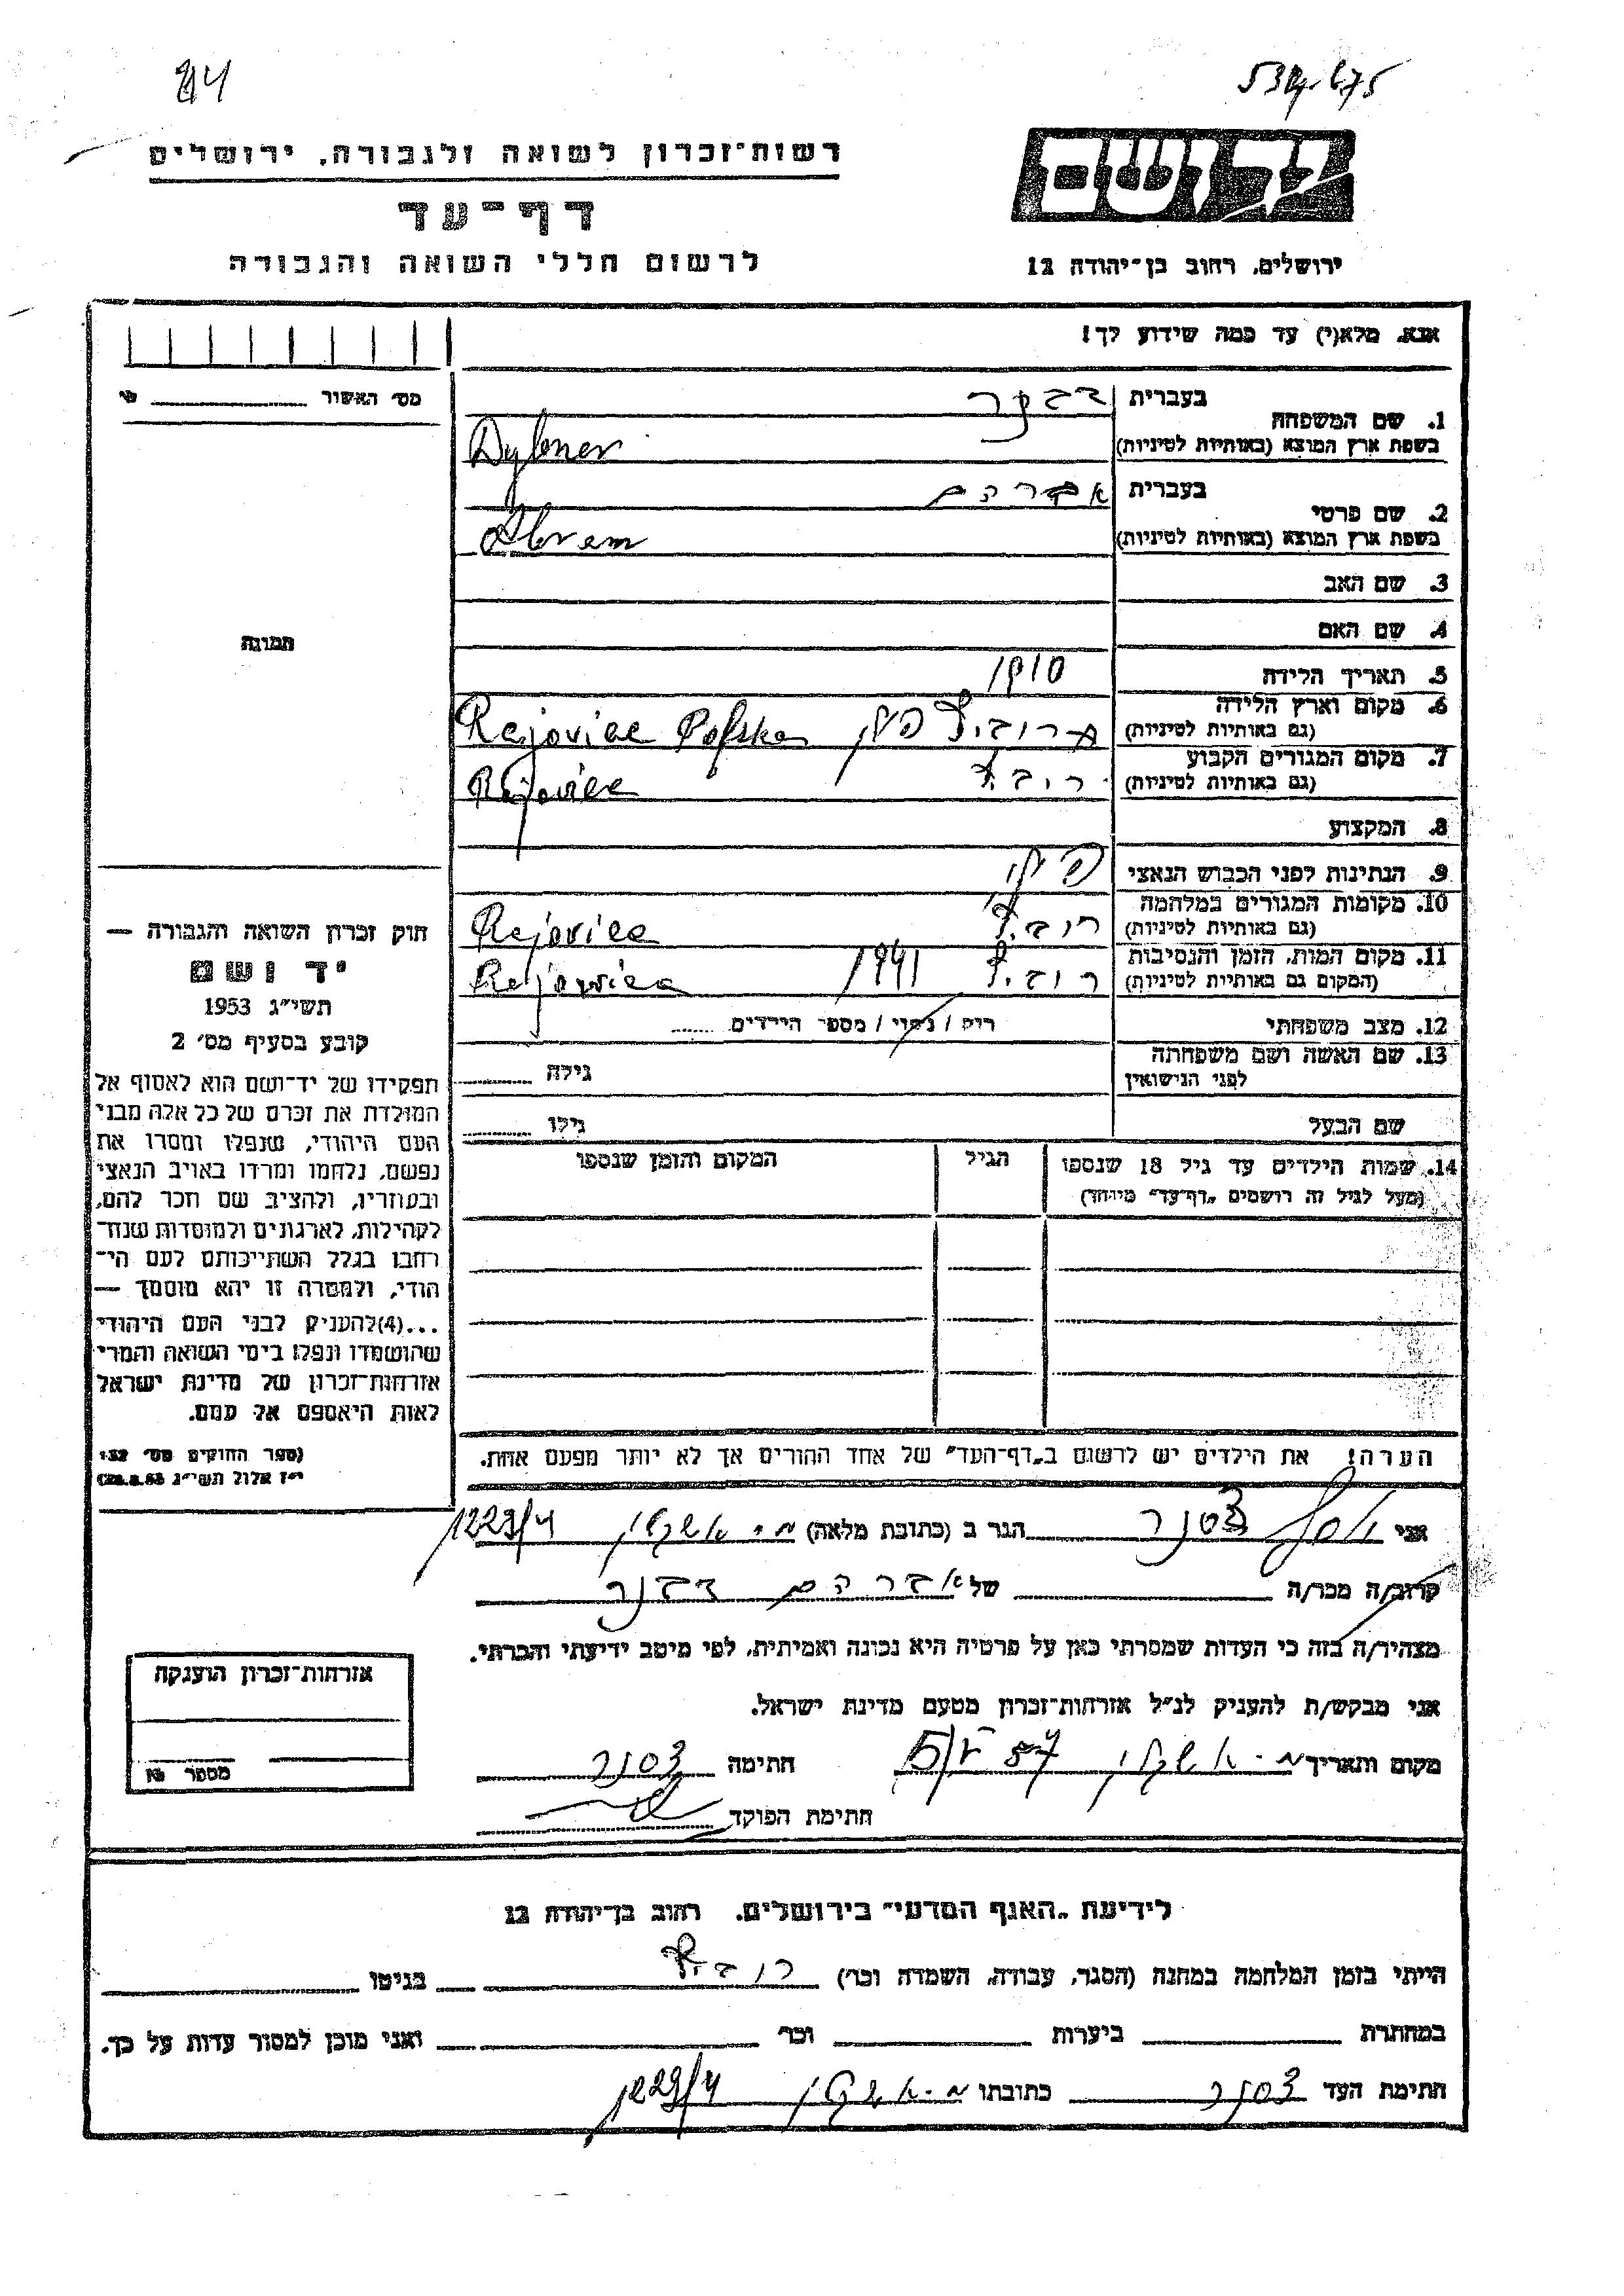 רשות־זכרון לשואה ולגבורה, ירושלים
דף־עד
לרשום חללי השואה והגבורה
ירושלים, רחוב בן־יהודה 12
אנא, מלא(י) עד כמה שידוע לך!
מס׳ האשור
1. שם המשפחה
בעברית
בשפת ארץ המוצא (באותיות לטיניות)
2. שם פרטי
בעברית אברהם
בשפת ארץ המוצא (באותיות לטיניות) Abram
3. שם האב
4. שם האם
5. תאריך הלידה 1910
6. מקום וארץ הלידה
(גם באותיות לטיניות) Rejoviec Polska
7. מקום המגורים הקבוע
(גם באותיות לטיניות) Rejoviec
8. המקצוע
9. הנתינות לפני הכבוש הנאצי
10. מקומות המגורים במלחמה
(גם באותיות לטיניות) Rejoviec
11. מקום המות, הזמן והנסיבות
(המקום גם באותיות לטיניות) 1941 Rejowiec
12. מצב משפחתי רוק / נשוי / מספר הילדים
13. שם האשה ושם משפחתה
לפני הנישואין גילה
שם הבעל גילו
14. שמות הילדים עד גיל 18 שנספו
(מעל לגיל זה רושמים „דף־עד״ מיוחד)
הגיל
המקום והזמן שנספו
תמונה
חוק זכרון השואה והגבורה —
יד ושם
תשי״ג 1953
קובע בסעיף מס׳ 2
תפקידו של יד־ושם הוא לאסוף אל
המולדת את זכרם של כל אלה מבני
העם היהודי, שנפלו ומסרו את
נפשם, נלחמו ומרדו באויב הנאצי
ובעוזריו, ולהציב שם וזכר להם,
לקהילות, לארגונים ולמוסדות שנח־
רבו בגלל השתייכותם לעם הי־
הודי, ולמטרה זו יהא מוסמך —
...(4) להעניק לבני העם היהודי
שהושמדו ונפלו בימי השואה והמרי
אזרחות־זכרון של מדינת ישראל
לאות היאספם אל עמם.
(ספר החוקים מס׳ 132
י״ז אלול תשי״ג 28.8.53)
הערה! את הילדים יש לרשום ב„דף־העד״ של אחד ההורים אך לא יותר מפעם אחת.
אני הגר ב (כתובת מלאה)
קרוב/ה מכר/ה של אברהם
מצהיר/ה בזה כי העדות שמסרתי כאן על פרטיה היא נכונה ואמיתית, לפי מיטב ידיעתי והכרתי.
אני מבקש/ת להעניק לנ״ל אזרחות־זכרון מטעם מדינת ישראל.
מקום ותאריך חתימה
חתימת הפוקד
אזרחות־זכרון הוענקה
מספר
לידיעת „האגף המדעי״ בירושלים, רחוב בן־יהודה 12
הייתי בזמן המלחמה במחנה (הסגר, עבודה, השמדה וכו׳) בגיטו
במחתרת ביערות וכו׳ ואני מוכן למסור עדות על כך.
חתימת העד כתובתו